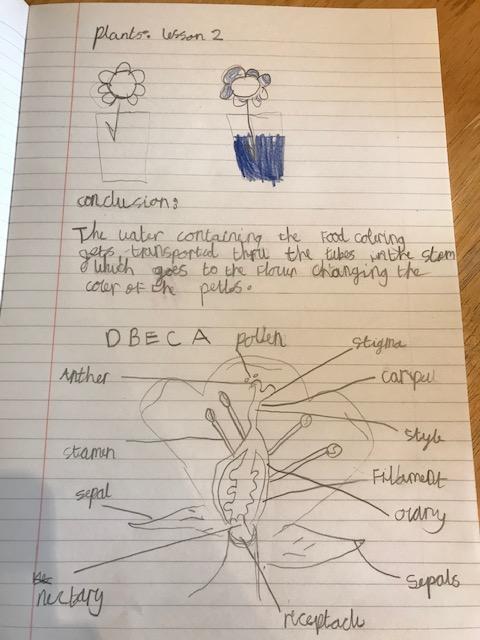 plants: lesson 2
conclusion:
The water containing the Food coloring
gets transported thru the tubes in the stem
which goes to the flower changing the
color of the petles.
D B E C A
pollen
Stigma
Anther
carpul
style
stamen
Fillament
sepal
ovary
Sepals
nectary
receptacle